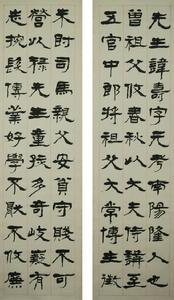 先生諱壽字元考南陽隆人也
曾祖父攸春秋以大夫侍講至
五官中郎將祖父大常博士徵
朱爵司馬親父安貧守賤不可
營以祿先生童孩多奇岐嶷有
志捥髮傳業好學不厭不攸廉